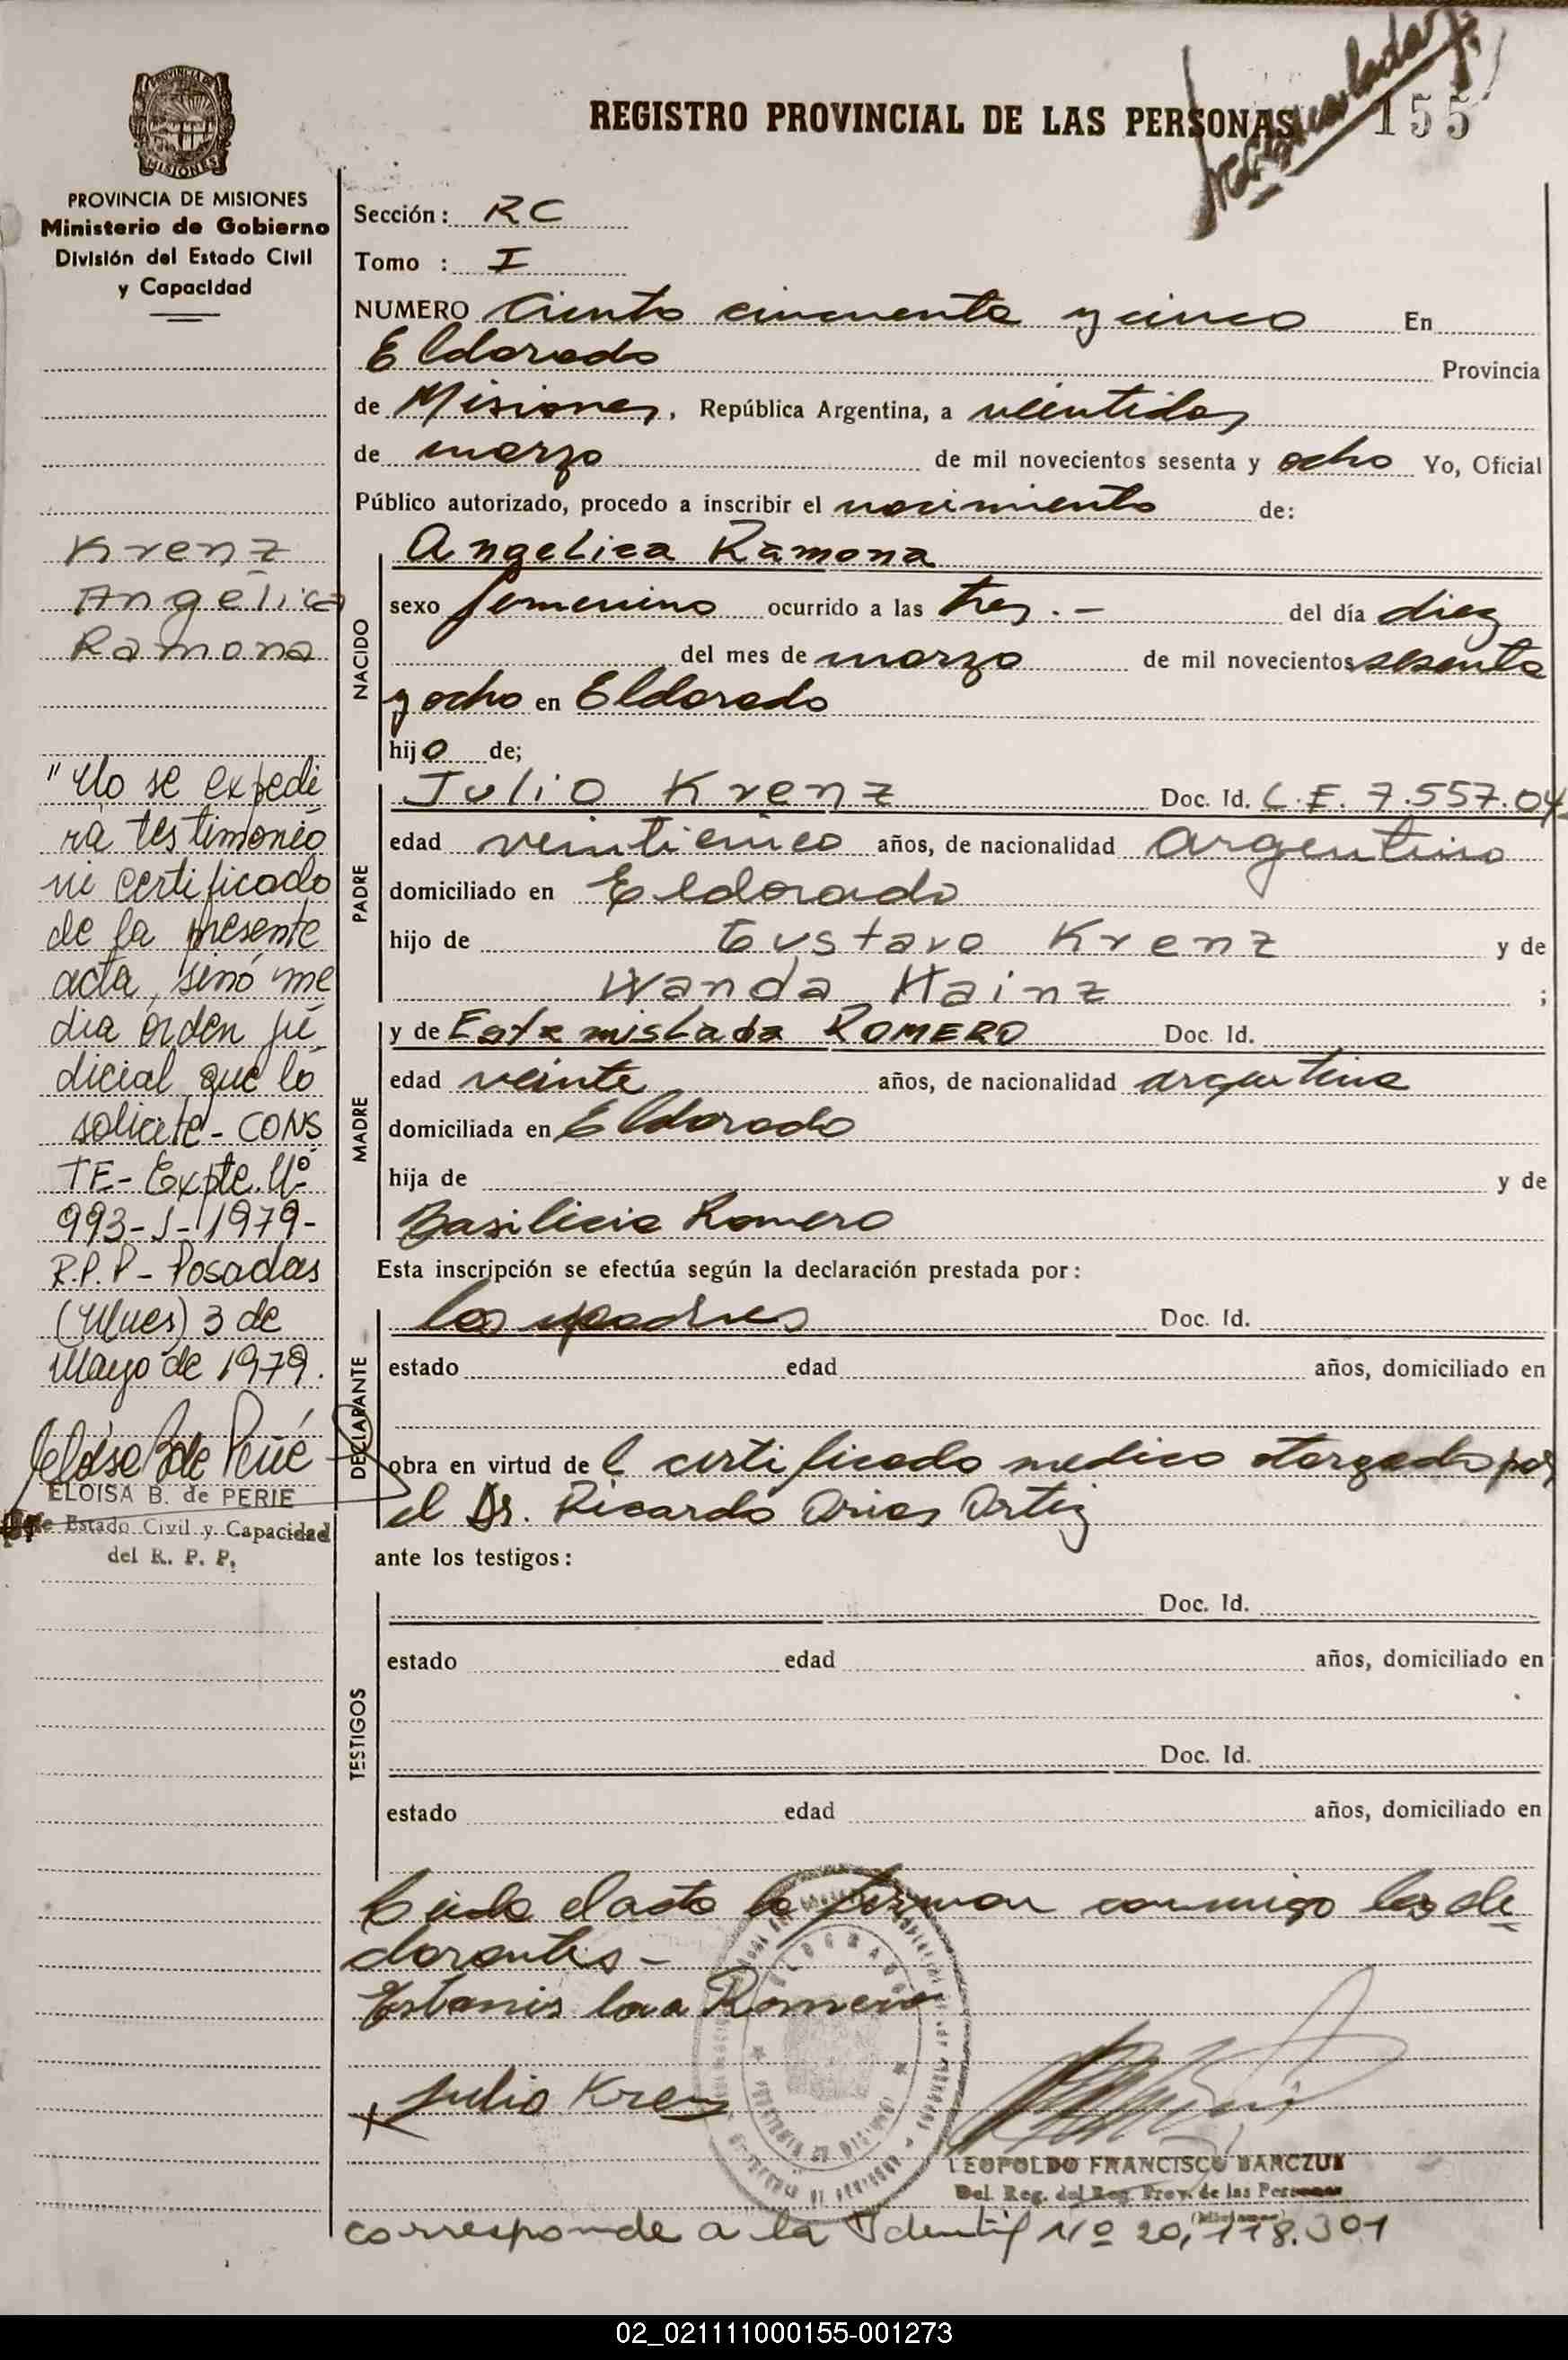 REGISTRO PROVINCIAL DE LAS PERSONAS
155
PROVINCIA DE MISIONES
Ministerio de Gobierno
División del Estado Civil
y Capacidad
Krenz
Angélica
Ramona
"No se expedi
rá testimonio
ni certificado
de la presente
acta, sinó me
dia órden ju
dicial que lo
solicite - CONS
TE - Expte. Nº
993-J-1979-
R.P.P - Posadas
(Mnes) 3 de
Mayo de 1979.
ELOISA B. de PERIE
Estado Civil y Capacidad
del R. P. P.
Sección: RC
Tomo : I
NUMERO Ciento cincuenta y cinco En
Eldorado Provincia
de Misiones, República Argentina, a veintidos
de marzo de mil novecientos sesenta y ocho Yo, Oficial
Público autorizado, procedo a inscribir el nacimiento de:
NACIDO
Angelica Ramona
sexo femenino ocurrido a las tres.- del día diez
del mes de marzo de mil novecientos sesenta
y ocho en Eldorado
hija de;
PADRE
Julio Krenz Doc. Id. L.E. 7.557.04
edad veinticinco años, de nacionalidad argentina
domiciliado en Eldorado
hijo de Gustavo Krenz y de
Wanda Hainz ;
MADRE
y de ROMERO Doc. Id.
edad veinte años, de nacionalidad argentina
domiciliada en Eldorado
hija de y de
Basilicia Romero
Esta inscripción se efectúa según la declaración prestada por:
DECLARANTE
los padres Doc. Id.
estado edad años, domiciliado en
obra en virtud de l certificado medico otorgado por
el Dr. Ricardo Arias Ortiz
ante los testigos:
TESTIGOS
Doc. Id.
estado edad años, domiciliado en
Doc. Id.
estado edad años, domiciliado en
Leida el acta la firman conmigo los de
clarantes -
Estanis laa Romero
Julio Krenz
LEOPOLDO FRANCISCO BARCZUK
Del. Reg. del Reg. Prov. de las Personas
(Misiones)
corresponde a la Identif Nº 20,118.301
02_021111000155-001273